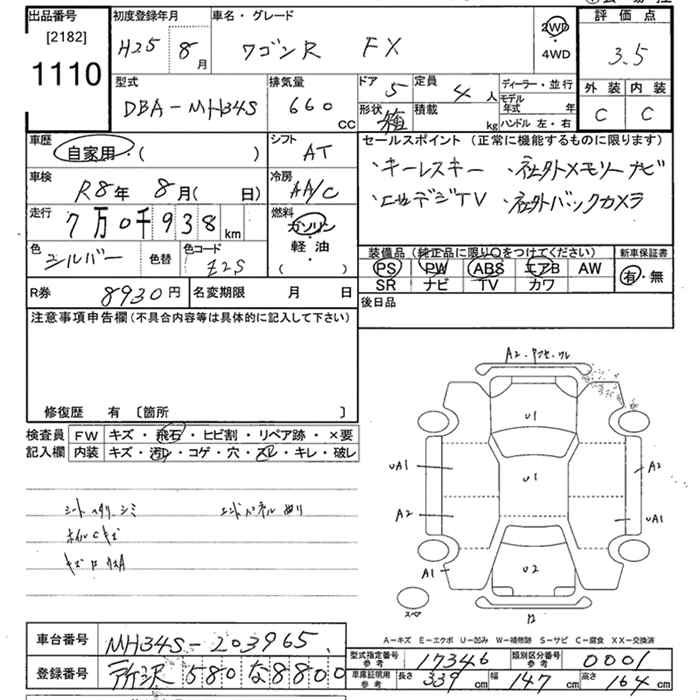 出品番号 初度登録年月 車名・グレード 2WD 評価点
[2182] H25 8月 ワゴンR FX ・4WD 3.5
1110 外装 内装
型式 排気量 ドア 5 定員 4人 ディーラー・並行 C C
DBA-MH34S 660cc 形状 箱 積載 kg モデル年式 年
ハンドル 左・右
車歴 シフト セールスポイント(正常に機能するものに限ります)
自家用・( ) AT ・キーレスキー ・社外メモリーナビ
車検 冷房 ・社外バックカメラ
R8年 8月( 日) AA/C
走行 燃料
7万0千938km ガソリン
軽・油 装備品(純正品に限り○をつけてください) 新車保証書
色 色替 色コード ( ) PS PW ABS エアB AW 有・無
シルバー Z2S SR ナビ TV カワ
R券 8930円 名変期限 月 日 後日品
注意事項申告欄(不具合内容等は具体的に記入して下さい)
修復歴 有 〔箇所 〕
検査員 FW キズ・飛石・ヒビ割・リペア跡・×要
記入欄 内装 キズ・汚レ・コゲ・穴・スレ・キレ・破レ
U1
UA1 U1 A2
A2 UA1
A1 U2
スペア
A-キズ E-エクボ U-凹み W-補修跡 S-サビ C-腐食 XX-交換済
車台番号 MH34S-203965
登録番号 所沢 580 な 8800
型式指定番号 参考 17346 類別区分番号 参考 0001
車庫証明用 参考 長さ 339cm 幅 147cm 高さ 164cm